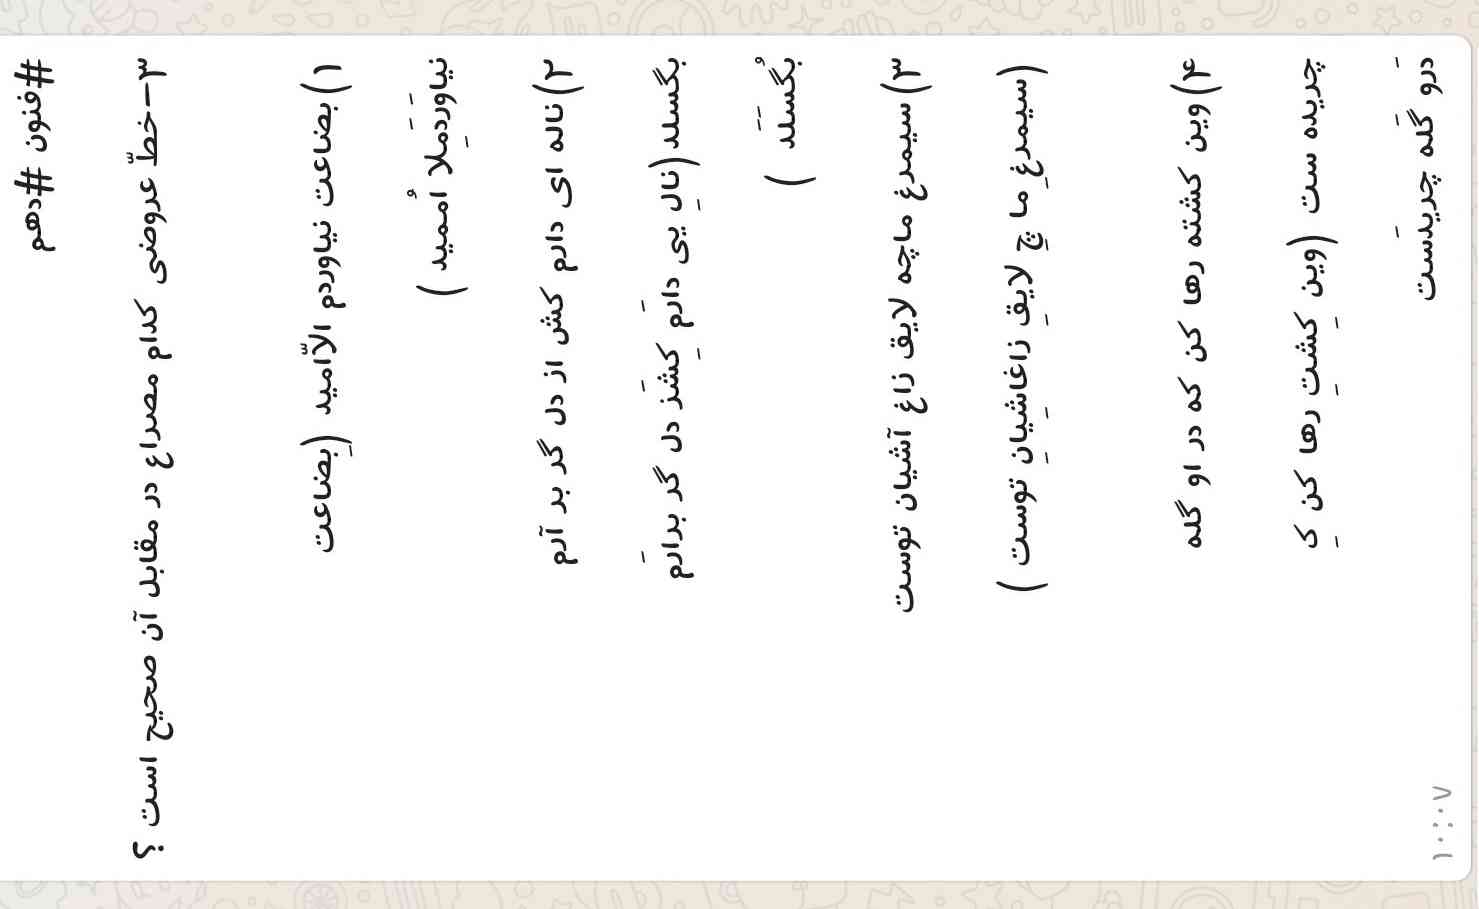 #فنون #دهم
۳-خطّ عروضی کدام مصراع در مقابل آن صحیح است ؟
۱) بضاعت نیاوردم الّاامید (بِضاعت
نیاوَردَمِلا اُممید )
۲) ناله ای دارم کش از دل گر بر آرم
بگسلد (نالِ یی دارَم کِشَز دل گر برارَم
بگُسَلَد )
۳) سیمرغ ماچه لایق زاغ آشیان توست
(سیمرغِ ما چِ لایقِ زاغاشِیانِ توست )
۴) وین کشته رها کن که در او گله
چریده ست (وین کِشتِ رها کن کِ
دَرو گَله چریدَست
۱۰:۰۷